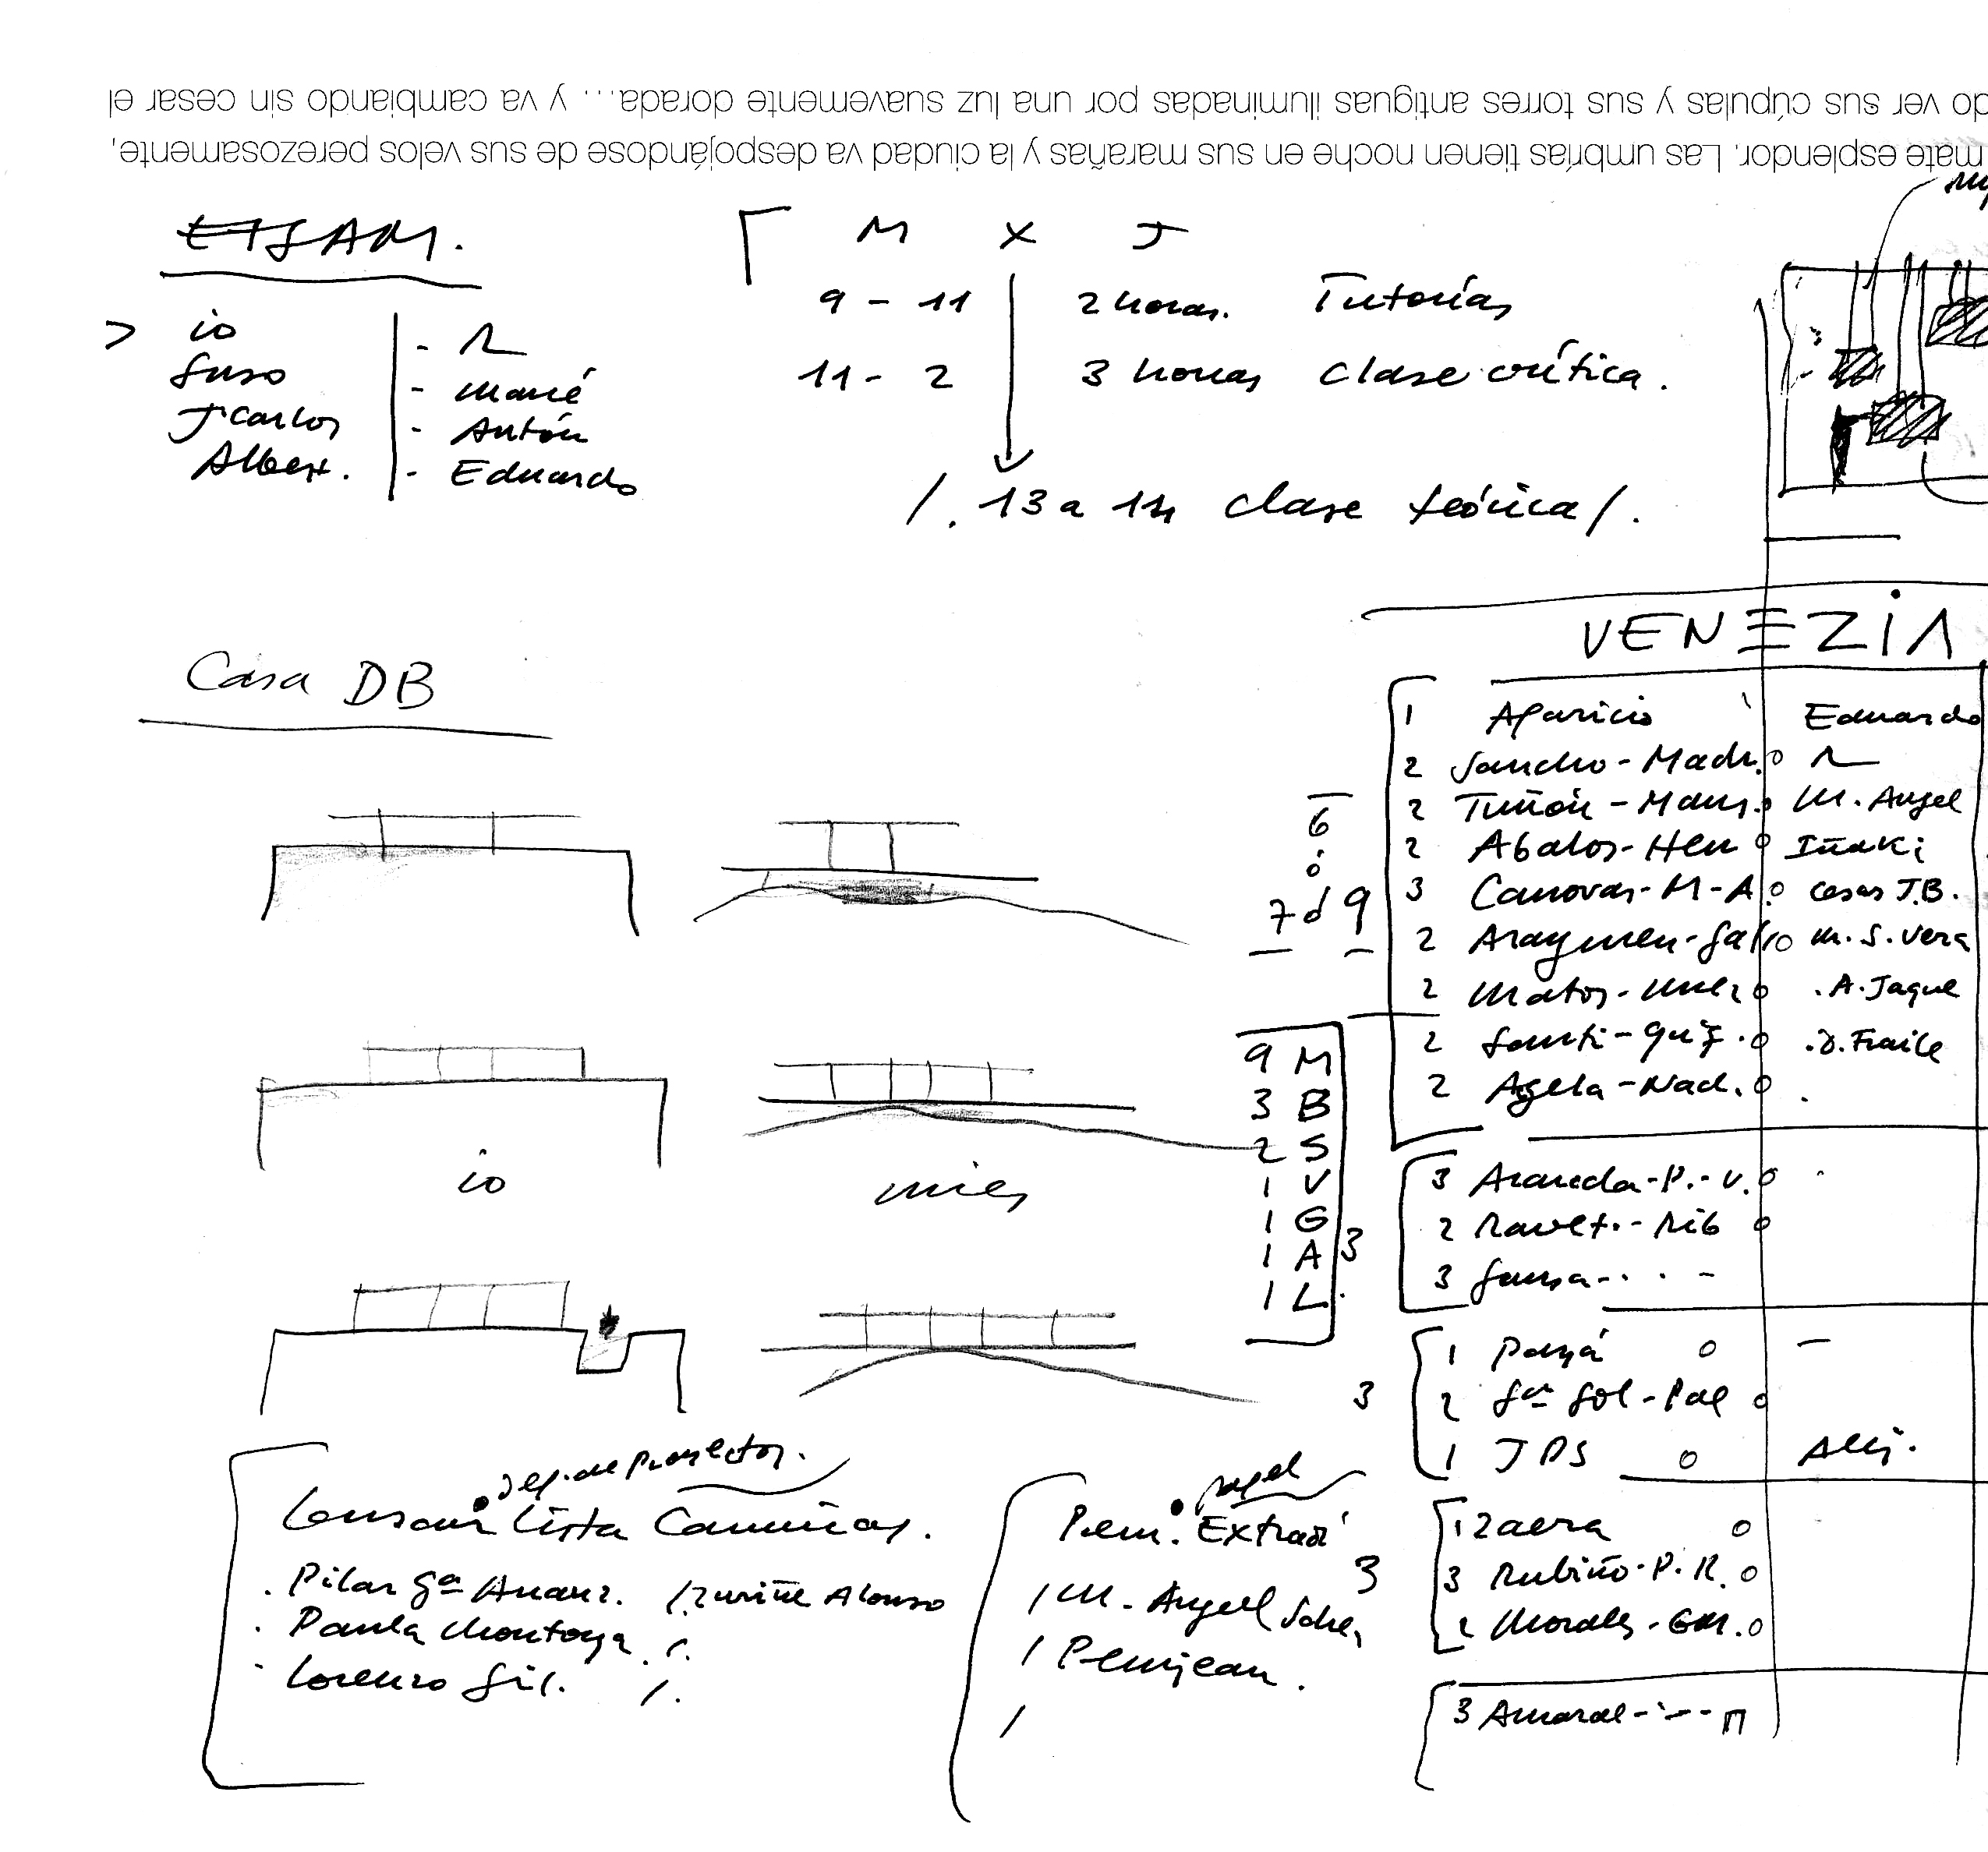 mate esplendor. Las umbrías tienen noche en sus marañas y la ciudad va despojándose de sus velos perezosamente,
do ver sus cúpulas y sus torres antiguas iluminadas por una luz suavemente dorada... y va cambiando sin cesar el
ETSAM.
> io
Suso - María
J. Carlos - Antón
Albert. - Eduardo
M X J
9 - 11 2 horas. Tutorías
11 - 2 3 horas clase crítica.
/. 13 a 14 clase teórica /.
VENEZIA
Casa DB
1 Aparicio Eduardo
2 Sancho - Madr.
2 Tuñón - Mans. M. Angel
2 Abalos - Herr Iñaki
3 Canovas - M - A. casas J.B.
2 Aranguren - Gall M. S. Vera
2 Matos - A. Jaque
2 Santi - D. Fraile
2 Ageta - Nad.
6 ó 7 ó 9
9 M
3 B
2 S
1 V
1 G
1 A 3
1 L
io mies
3 Araneda - P. - V.
2 Ravet. - Rib
3
1 Payá
3 2 Gª Sol - Pal
1 JDS Alej.
dep. de Proyectos.
Lista Camuñas.
. Pilar Gª Almanz. / Zuriñe Alonso
. Paula Montoya /.
- Lorenzo Gil. /.
papel
Prem. Extraor
/ M. Angel
/ Pemjean.
/
1 Zaera
3 3 Rubiño - P. R.
2 Morales - GM.
3 Amaral